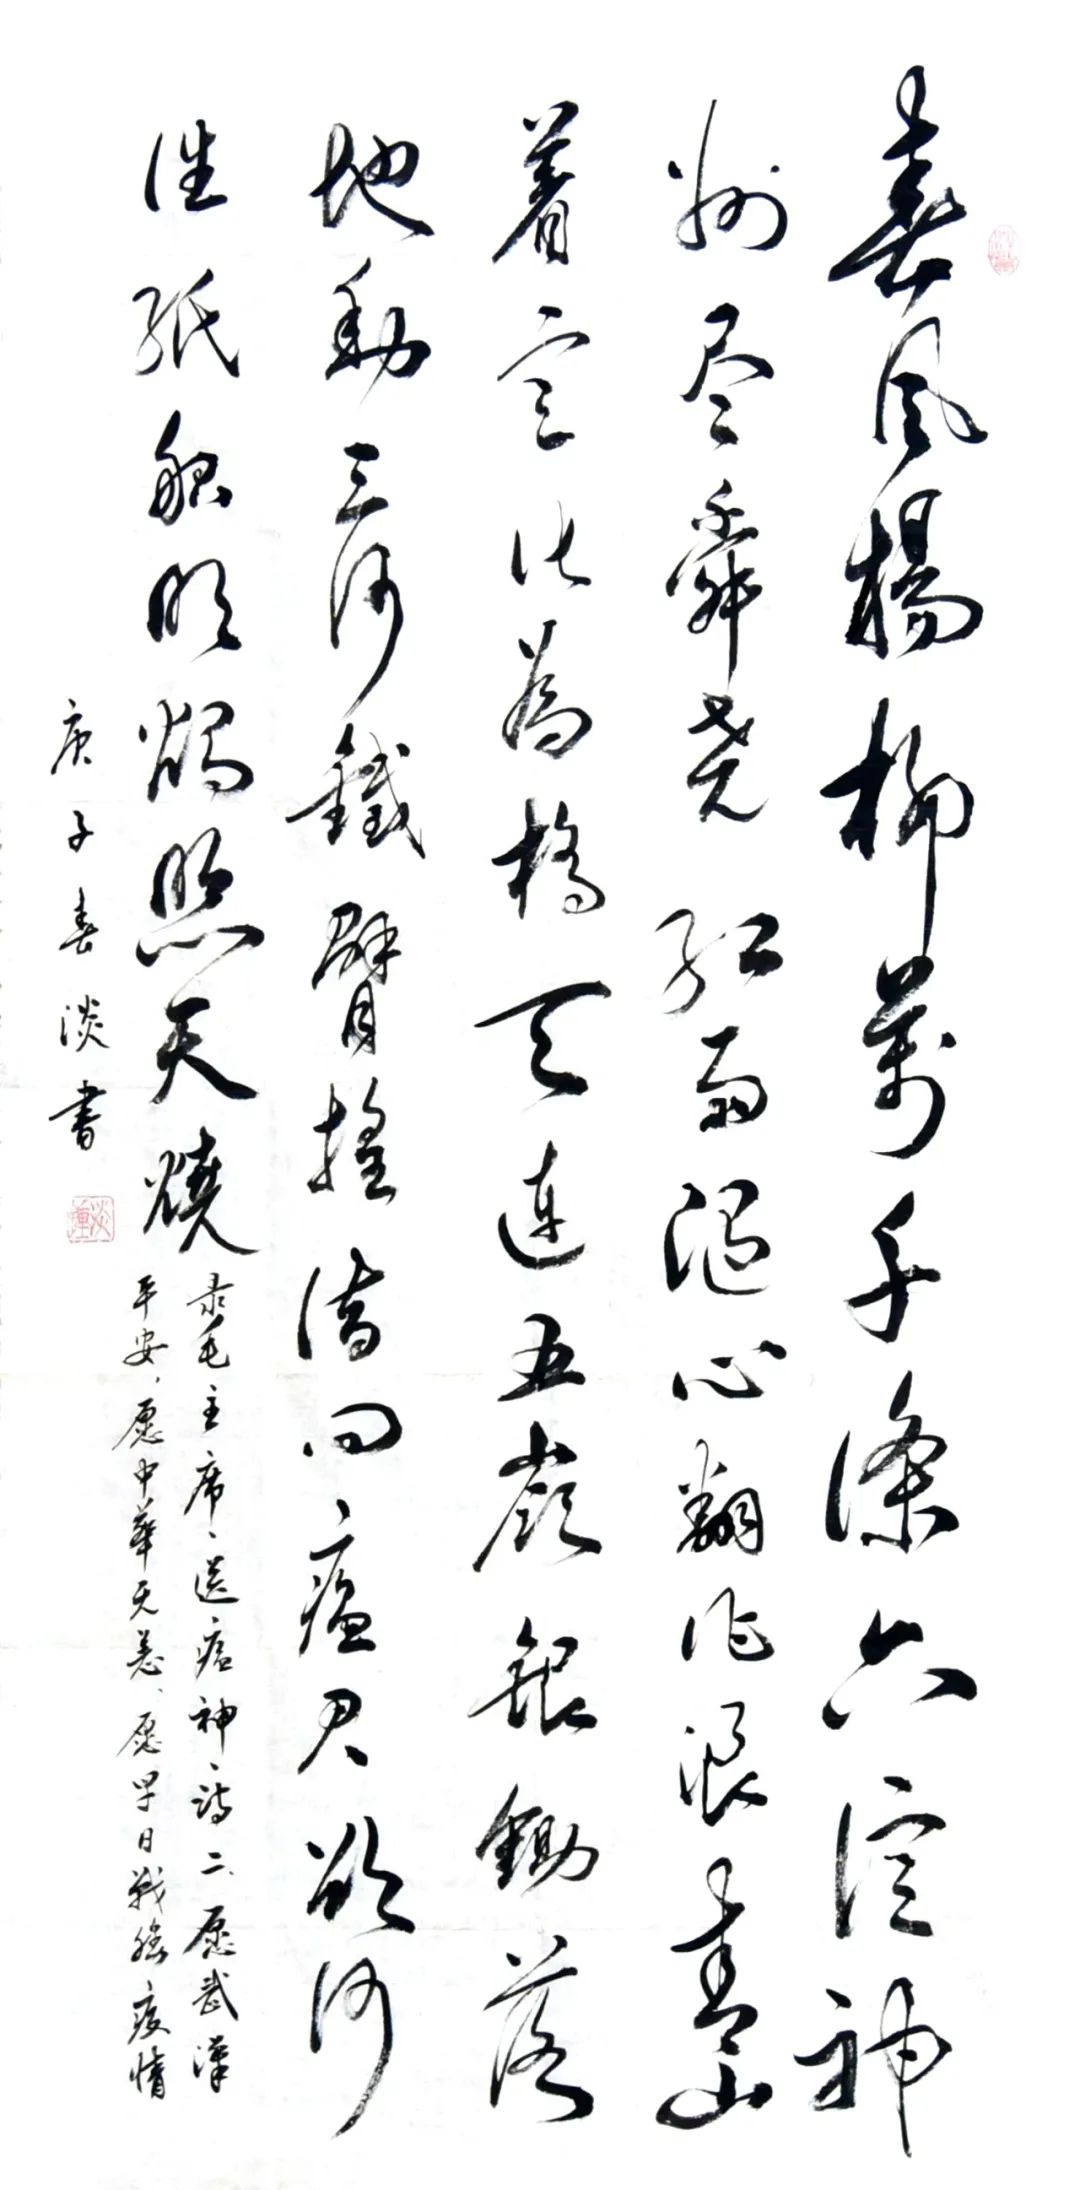 春風楊柳萬千條六億神
州尽舜尧紅雨隨心翻作浪青山
着意化為橋天連五嶺銀鋤落
地動三河鐵臂搖借問瘟君欲何
往紙船明燭照天燒
录毛主席、送瘟神、诗二、愿武漢
平安，愿中華无恙、愿早日戰勝疫情
庚子春淡書